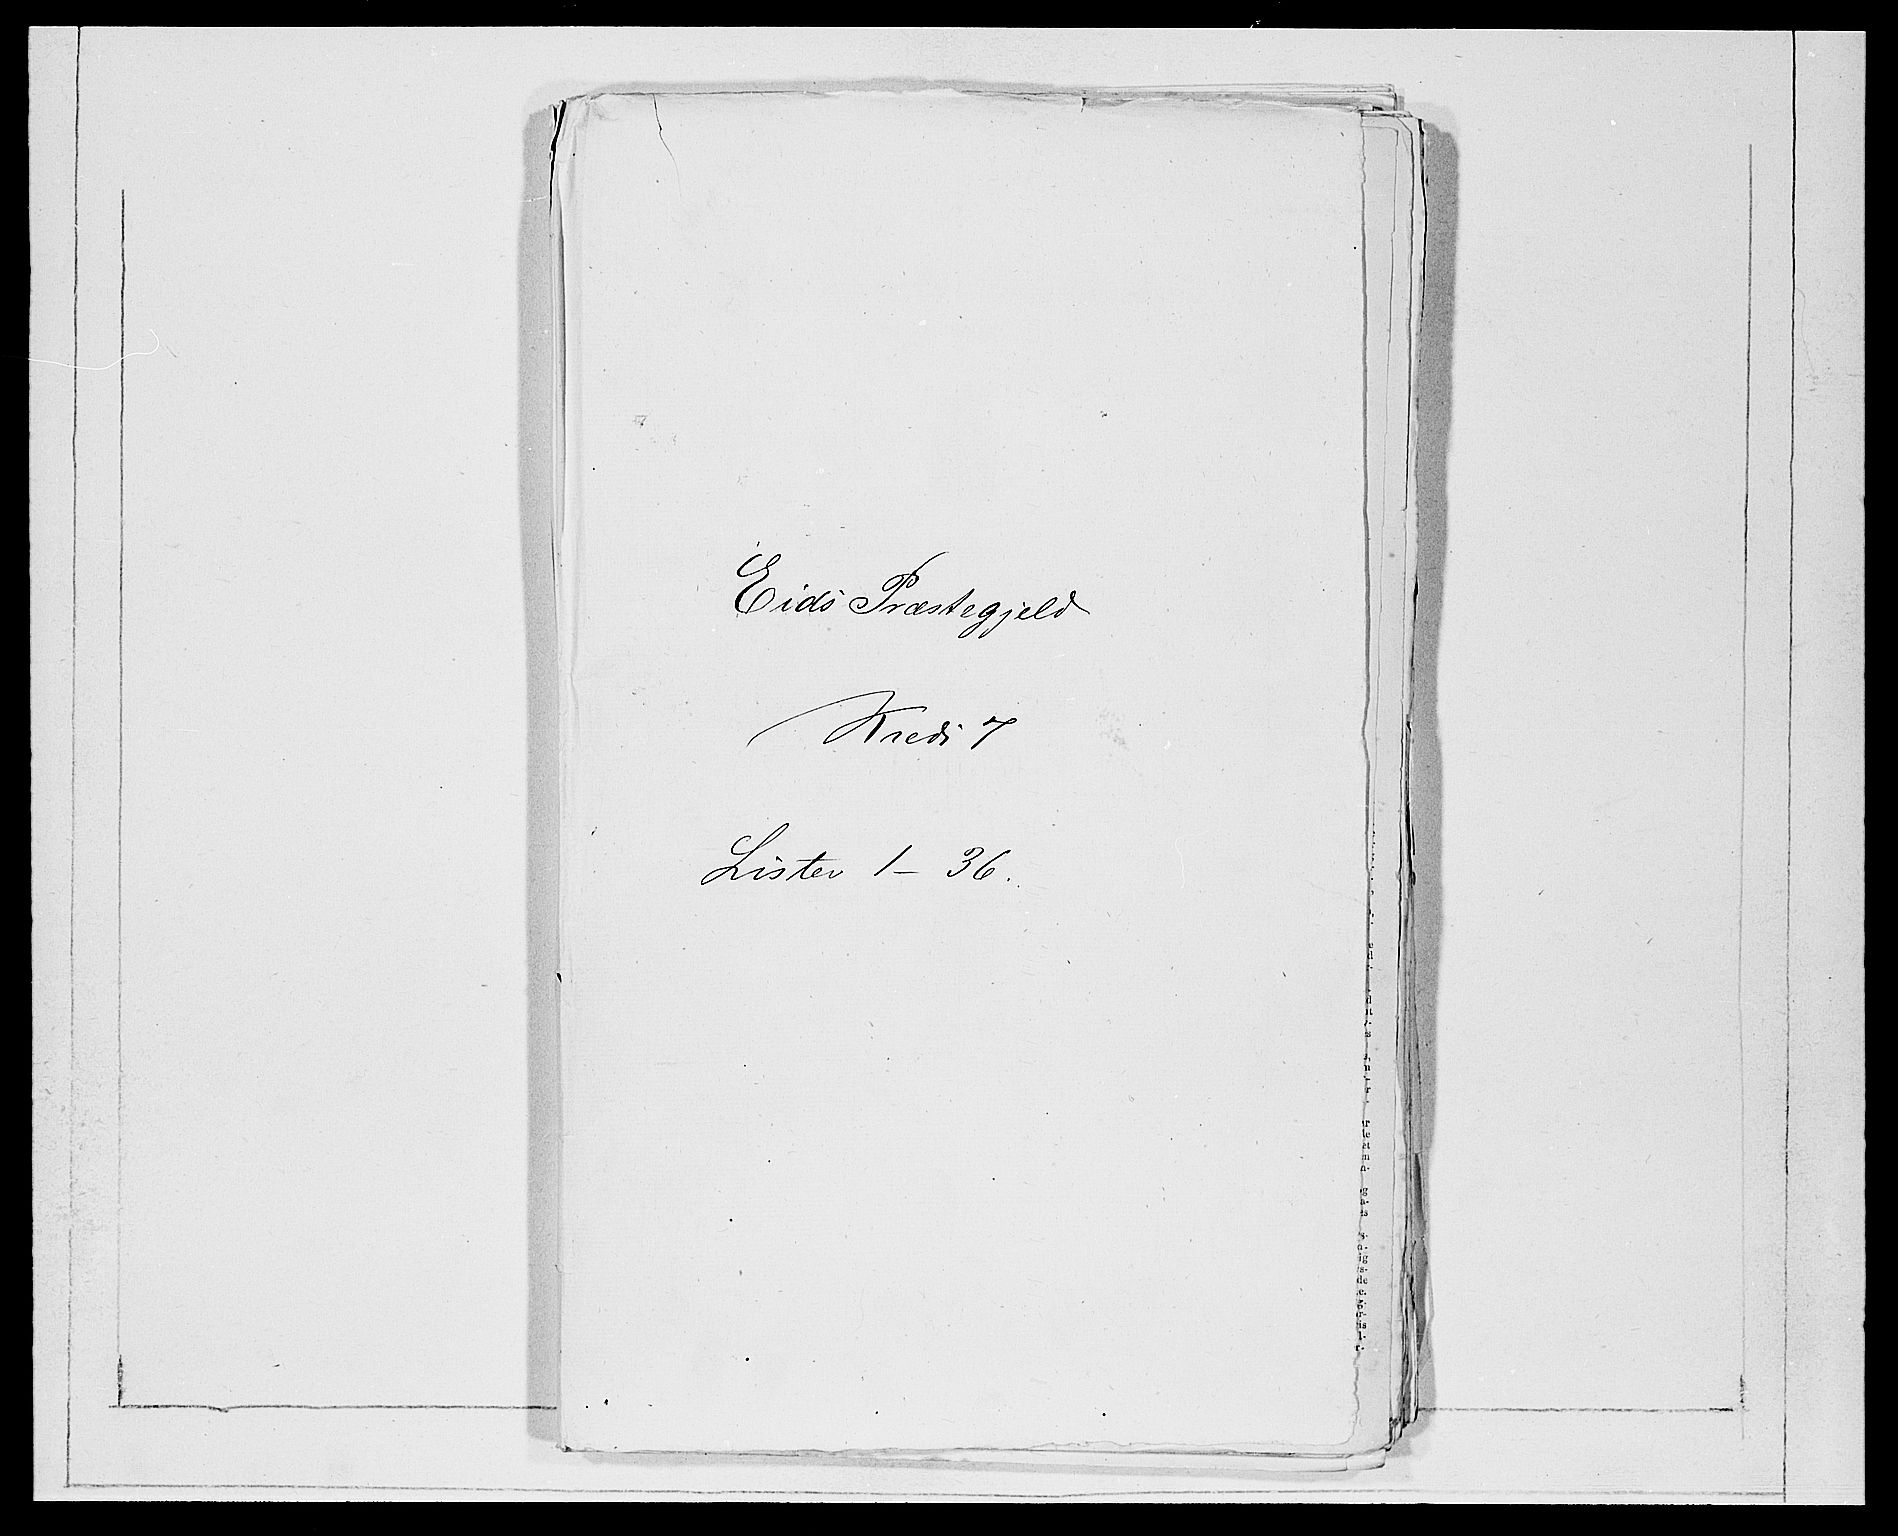 Eids Præstegjeld
Kreds 7
Lister 1 – 36.